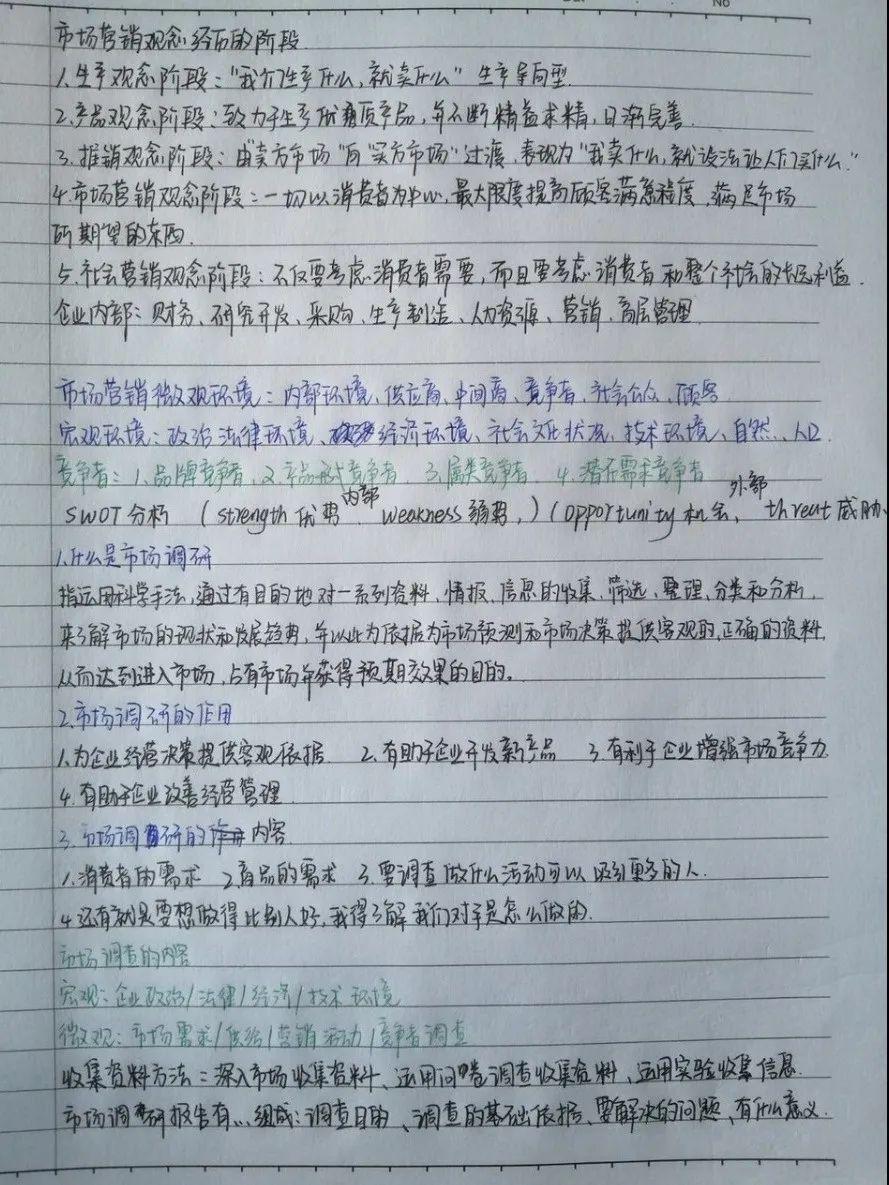 No
市场营销观念经历的阶段
1.生产观念阶段："我们生产什么，就卖什么" 生产导向型
2.产品观念阶段：致力于生产优质产品，并不断精益求精，日渐完善.
3.推销观念阶段：由"卖方市场"向"买方市场"过渡，表现为"我卖什么，就设法让人们买什么."
4.市场营销观念阶段：一切以消费者为中心，最大限度提高顾客满意程度，满足市场
所期望的东西.
5.社会营销观念阶段：不仅要考虑消费者需要，而且要考虑消费者和整个社会的长远利益.
企业内部：财务、研究开发、采购、生产制造、人力资源、营销、高层管理
市场营销微观环境：内部环境、供应商、中间商、竞争者、社会公众、顾客
宏观环境：政治法律环境、经济环境、社会文化状况、技术环境、自然、人口
竞争者：1.品牌竞争者 2.产品形式竞争者 3.属类竞争者 4.潜在需求竞争者
内部 外部
SWOT分析 (strength优势 weakness弱势,)(opportunity机会, threat威胁
1.什么是市场调研
指运用科学手法，通过有目的地对一系列资料、情报、信息的收集、筛选、整理、分类和分析，
来了解市场的现状和发展趋势，并以此为依据为市场预测和市场决策提供客观的，正确的资料，
从而达到进入市场，占有市场并获得预期效果的目的。
2.市场调研的作用
1.为企业经营决策提供客观依据 2.有助于企业开发新产品 3.有利于企业增强市场竞争力
4.有助于企业改善经营管理
3.市场调研的内容
1.消费者的需求 2.商品的需求 3.要调查做什么活动可以吸引更多的人.
4.还有就是要想做得比别人好，我得了解我们对手是怎么做的.
市场调查的内容
宏观：企业政治/法律/经济/技术环境
微观：市场需求/供给/营销活动/竞争者调查
收集资料方法：深入市场收集资料、运用问卷调查收集资料、运用实验收集信息.
市场调研报告有...组成：调查目的、调查的基础依据、要解决的问题、有什么意义.